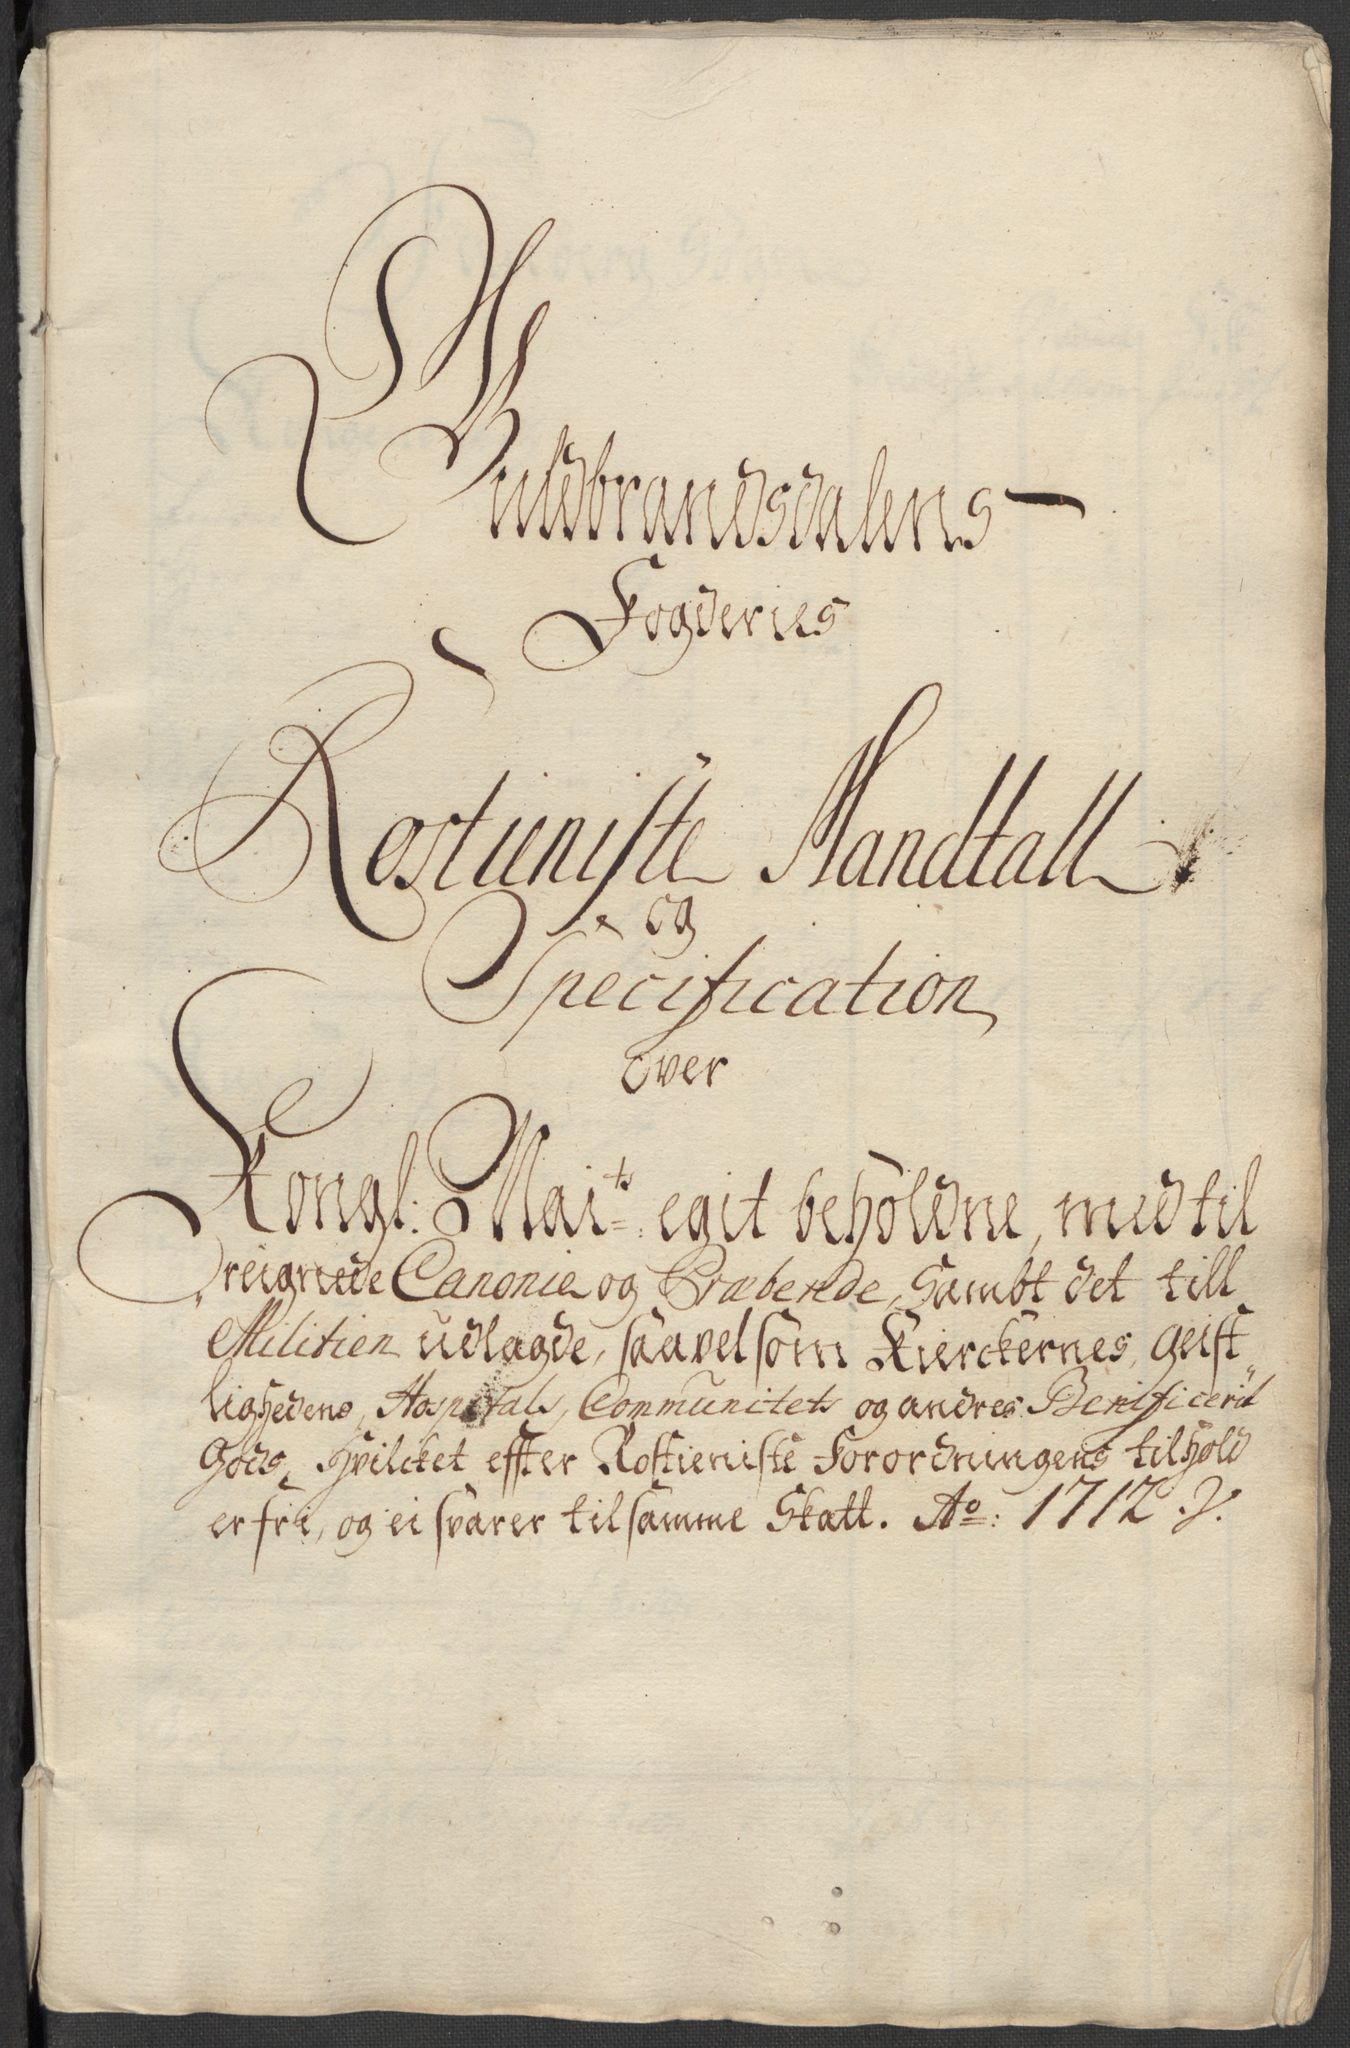 Guldbrandsdalens
Fogderies
Rostieniste Mandtall
og
Specification
over
Kongl: Mai.ts egit beholdne, med til
reignede Canonie og Præbende, Sambt det till
Militien udlagde, saavelsom Kierckernes, geist
lighedens, Hospitals, Communitets og andres Benificerit
Gods, hvilcket effter Rostieniste Forordningens tilhold
er fri, og ei svarer til samme Skatt. Ao: 1712.